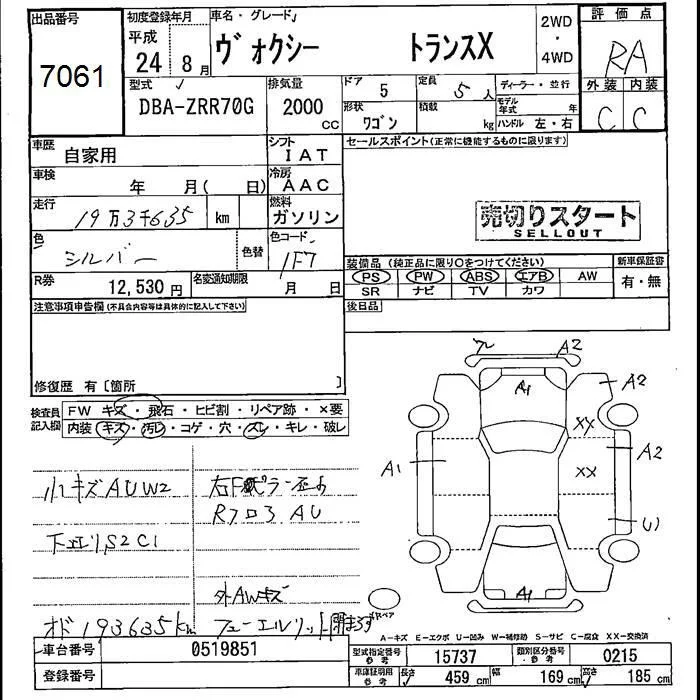 出品番号
7061
初度登録年月
平成
24 8月
車名・グレード
ヴォクシー トランスX
2WD
・
4WD
評価点
RA
外装 内装
C C
型式
DBA-ZRR70G
排気量
2000
cc
ドア 5
定員 5人
形状
ワゴン
積載
kg
ディーラー・並行
モデル年式 年
ハンドル 左・右
車歴 自家用
シフト
IAT
車検 年 月( 日)
冷房
AAC
走行 19万3千635 km
燃料
ガソリン
色 シルバー
色替
色コード
1F7
R券 12,530円
名変通知期限
月 日
セールスポイント(正常に機能するものに限ります)
売切りスタート
SELLOUT
装備品(純正品に限り○をつけてください)
新車保証書
PS PW ABS エアB AW
SR ナビ TV カワ
有・無
後日品
注意事項申告欄(不具合内容等は具体的に記入して下さい)
修復歴 有〔箇所 〕
検査員
記入欄
FW キズ・飛石・ヒビ割・リペア跡・×要
内装 キズ・汚レ・コゲ・穴・スレ・キレ・破レ
小キズAUW2
下回りS2C1
右Fピラー
Rフロア AU
外AWキズ
オド193635km
フューエルリッド
A2
A1
A2
XX
A2
XX
A1
U1
A1
スペア
A-キズ E-エクボ U-凹み W-補修跡 S-サビ C-腐食 XX-交換済
車台番号 0519851
登録番号
型式指定番号
参考
15737
類別区分番号
参考
0215
車庫証明用
参考
長さ 459cm 幅 169cm 高さ 185cm